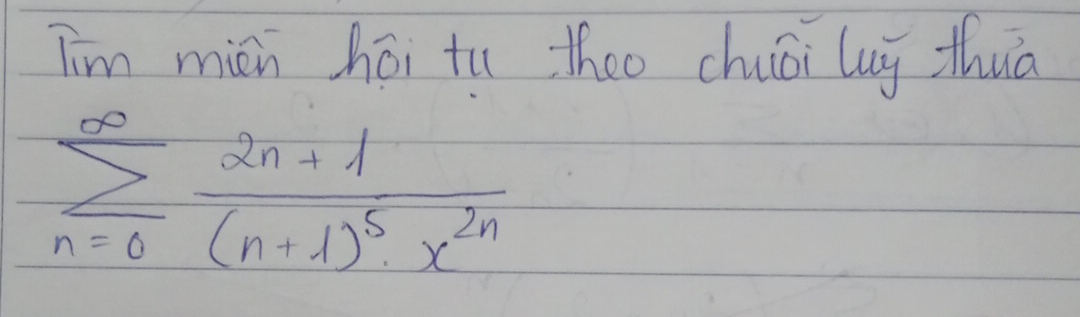 Tìm miền hội tụ theo chuỗi luỹ thừa
∞
∑ 2n + 1
n = 0 (n+1)^5 . x^{2n}